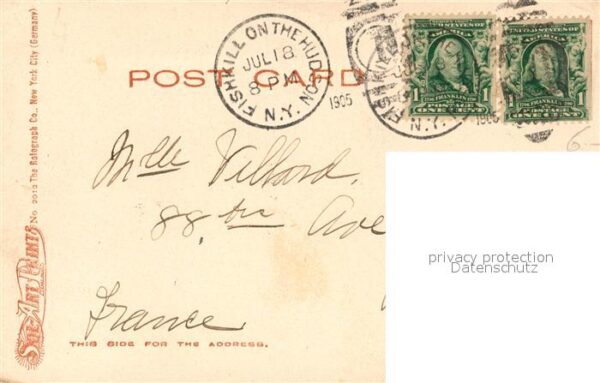 FISHKILL ON THE HUDSON
JUL 18
8 PM
N.Y.
1905
POST CARD
UNITED STATES OF AMERICA
FRANKLIN
POSTAGE
1 ONE CENT 1
UNITED STATES OF AMERICA
FRANKLIN
POSTAGE
1 ONE CENT 1
N.Y.
1905
Mlle
88 bis Ave
France
THIS SIDE FOR THE ADDRESS.
No. 2012 The Rotograph Co., New York City (Germany)
SOL-ART PRINTS
privacy protection
Datenschutz
6.-